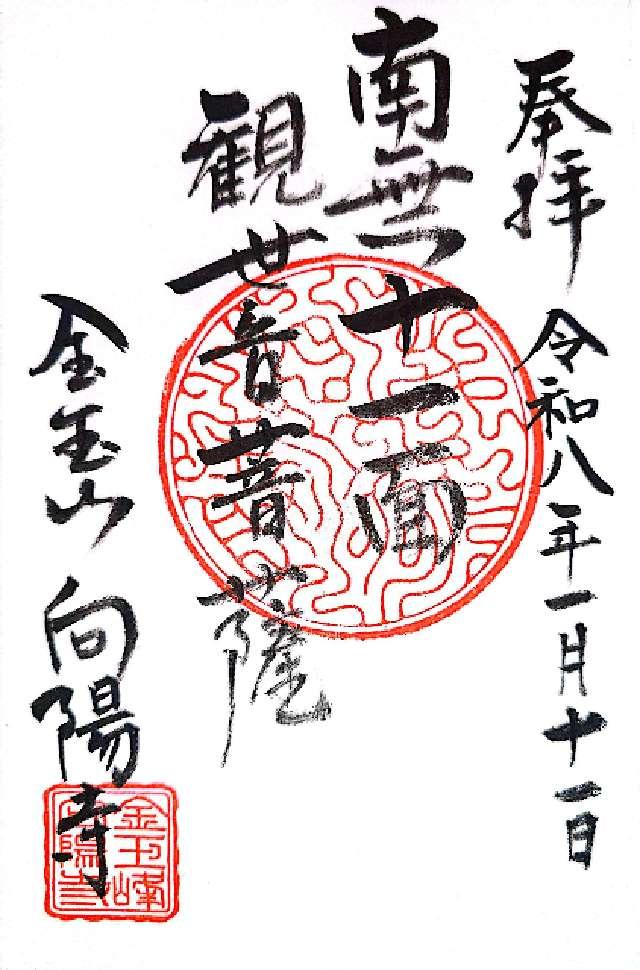 奉拝 令和八年一月十一日
南無十一面
観世音菩薩
金玉山 向陽寺
金玉峰
向陽寺